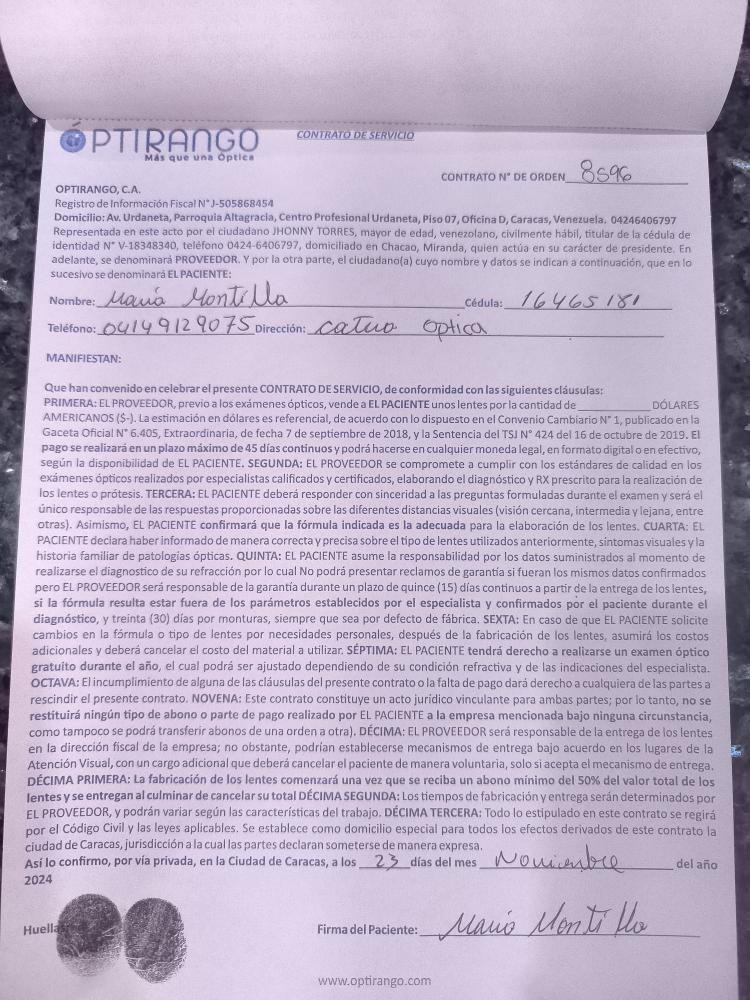 ÓPTIRANGO
Más que una Óptica
CONTRATO DE SERVICIO
CONTRATO N° DE ORDEN 8596
OPTIRANGO, C.A.
Registro de Información Fiscal N° J-505868454
Domicilio: Av. Urdaneta, Parroquia Altagracia, Centro Profesional Urdaneta, Piso 07, Oficina D, Caracas, Venezuela. 04246406797
Representada en este acto por el ciudadano JHONNY TORRES, mayor de edad, venezolano, civilmente hábil, titular de la cédula de
identidad N° V-18348340, teléfono 0424-6406797, domiciliado en Chacao, Miranda, quien actúa en su carácter de presidente. En
adelante, se denominará PROVEEDOR. Y por la otra parte, el ciudadano(a) cuyo nombre y datos se indican a continuación, que en lo
sucesivo se denominará EL PACIENTE:
Nombre: Maria Montilla Cédula: 16465181
Teléfono: 04149129075 Dirección: Optica
MANIFIESTAN:
Que han convenido en celebrar el presente CONTRATO DE SERVICIO, de conformidad con las siguientes cláusulas:
PRIMERA: EL PROVEEDOR, previo a los exámenes ópticos, vende a EL PACIENTE unos lentes por la cantidad de ____________ DÓLARES
AMERICANOS ($-). La estimación en dólares es referencial, de acuerdo con lo dispuesto en el Convenio Cambiario N° 1, publicado en la
Gaceta Oficial N° 6.405, Extraordinaria, de fecha 7 de septiembre de 2018, y la Sentencia del TSJ N° 424 del 16 de octubre de 2019. El
pago se realizará en un plazo máximo de 45 días continuos y podrá hacerse en cualquier moneda legal, en formato digital o en efectivo,
según la disponibilidad de EL PACIENTE. SEGUNDA: EL PROVEEDOR se compromete a cumplir con los estándares de calidad en los
exámenes ópticos realizados por especialistas calificados y certificados, elaborando el diagnóstico y RX prescrito para la realización de
los lentes o prótesis. TERCERA: EL PACIENTE deberá responder con sinceridad a las preguntas formuladas durante el examen y será el
único responsable de las respuestas proporcionadas sobre las diferentes distancias visuales (visión cercana, intermedia y lejana, entre
otras). Asimismo, EL PACIENTE confirmará que la fórmula indicada es la adecuada para la elaboración de los lentes. CUARTA: EL
PACIENTE declara haber informado de manera correcta y precisa sobre el tipo de lentes utilizados anteriormente, síntomas visuales y la
historia familiar de patologías ópticas. QUINTA: EL PACIENTE asume la responsabilidad por los datos suministrados al momento de
realizarse el diagnostico de su refracción por lo cual No podrá presentar reclamos de garantía si fueran los mismos datos confirmados
pero EL PROVEEDOR será responsable de la garantía durante un plazo de quince (15) días continuos a partir de la entrega de los lentes,
si la fórmula resulta estar fuera de los parámetros establecidos por el especialista y confirmados por el paciente durante el
diagnóstico, y treinta (30) días por monturas, siempre que sea por defecto de fábrica. SEXTA: En caso de que EL PACIENTE solicite
cambios en la fórmula o tipo de lentes por necesidades personales, después de la fabricación de los lentes, asumirá los costos
adicionales y deberá cancelar el costo del material a utilizar. SÉPTIMA: EL PACIENTE tendrá derecho a realizarse un examen óptico
gratuito durante el año, el cual podrá ser ajustado dependiendo de su condición refractiva y de las indicaciones del especialista.
OCTAVA: El incumplimiento de alguna de las cláusulas del presente contrato o la falta de pago dará derecho a cualquiera de las partes a
rescindir el presente contrato. NOVENA: Este contrato constituye un acto jurídico vinculante para ambas partes; por lo tanto, no se
restituirá ningún tipo de abono o parte de pago realizado por EL PACIENTE a la empresa mencionada bajo ninguna circunstancia,
como tampoco se podrá transferir abonos de una orden a otra). DÉCIMA: EL PROVEEDOR será responsable de la entrega de los lentes
en la dirección fiscal de la empresa; no obstante, podrían establecerse mecanismos de entrega bajo acuerdo en los lugares de la
Atención Visual, con un cargo adicional que deberá cancelar el paciente de manera voluntaria, solo si acepta el mecanismo de entrega.
DÉCIMA PRIMERA: La fabricación de los lentes comenzará una vez que se reciba un abono mínimo del 50% del valor total de los
lentes y se entregan al culminar de cancelar su total DÉCIMA SEGUNDA: Los tiempos de fabricación y entrega serán determinados por
EL PROVEEDOR, y podrán variar según las características del trabajo. DÉCIMA TERCERA: Todo lo estipulado en este contrato se regirá
por el Código Civil y las leyes aplicables. Se establece como domicilio especial para todos los efectos derivados de este contrato la
ciudad de Caracas, jurisdicción a la cual las partes declaran someterse de manera expresa.
Así lo confirmo, por vía privada, en la Ciudad de Caracas, a los 23 días del mes Noviembre del año
2024
Huellas
Firma del Paciente: Maria Montilla
www.optirango.com